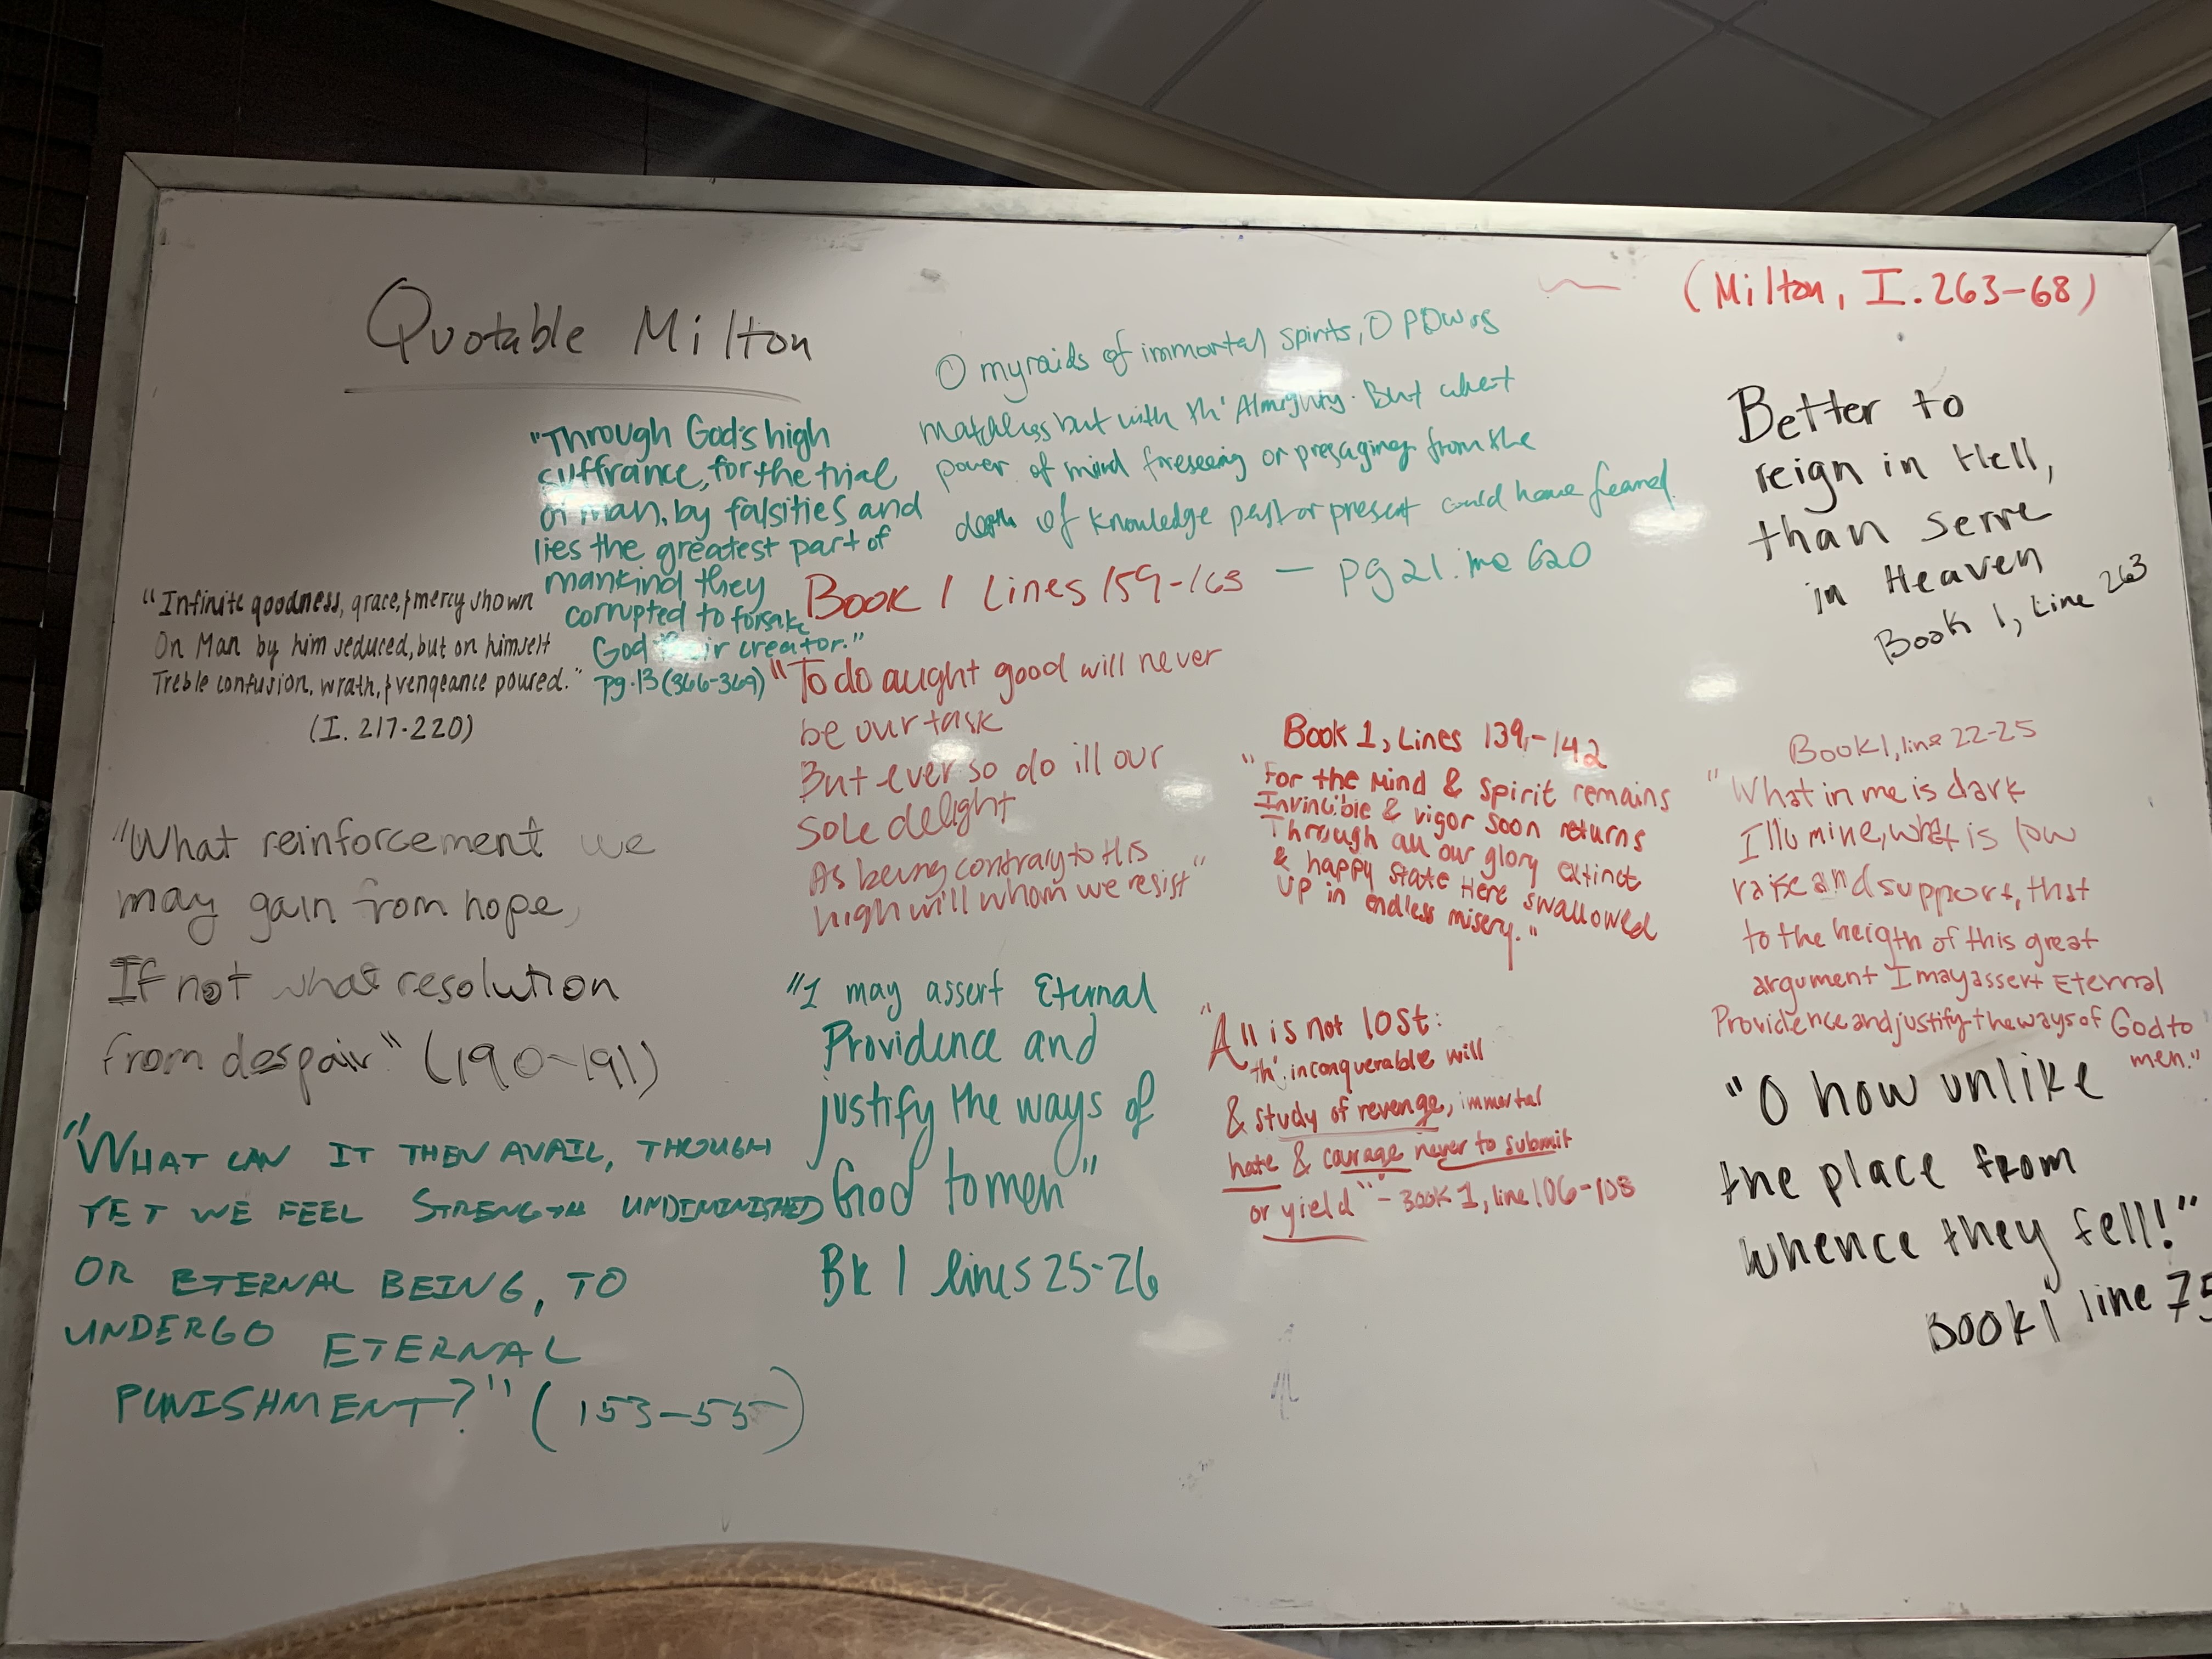 Quotable Milton
(Milton, I. 263-68)
"Through God's high
suffrance, for the trial
of man, by falsities and
lies the greatest part of
mankind they
corrupted to forsake
God their creator."
pg. 13 (366-369)
O myraids of immortal spirits, O Powers
matchless but with th' Almighty. But what
power of mind foreseeing or presaging from the
depth of knowledge past or present could have feared
— pg 21. line 620
Better to
reign in Hell,
than serve
in Heaven
Book 1, Line 263
"Infinite goodness, grace, & mercy shown
On Man by him seduced, but on himself
Treble confusion, wrath, & vengeance poured."
(I. 217-220)
Book 1 Lines 159-163
"To do aught good will never
be our task
But ever so do ill our
sole delight
As being contrary to His
high will whom we resist"
Book 1, Lines 139-142
"For the Mind & Spirit remains
Invincible & vigor soon returns
Through all our glory extinct
& happy state Here swallowed
up in endless misery."
Book 1, line 22-25
"What in me is dark
Illumine, what is low
raise and support, that
to the heigth of this great
argument I may assert Eternal
Providence and justify the ways of God to
men."
"What reinforcement we
may gain from hope,
If not what resolution
from despair" (190-191)
"I may assert Eternal
Providence and
justify the ways of
God to men"
Bk 1 lines 25-26
"All is not lost:
th' inconquerable will
& study of revenge, immortal
hate & courage never to submit
or yield" - Book 1, line 106-108
"O how unlike
the place from
whence they fell!"
Book 1 line 75
"WHAT CAN IT THEN AVAIL, THOUGH
YET WE FEEL STRENGTH UNDIMINISHED
OR ETERNAL BEING, TO
UNDERGO ETERNAL
PUNISHMENT?" (153-55)